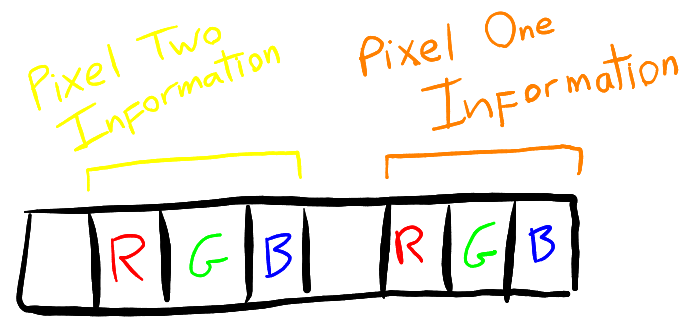 Pixel Two
Information
Pixel One
Information
R G B R G B